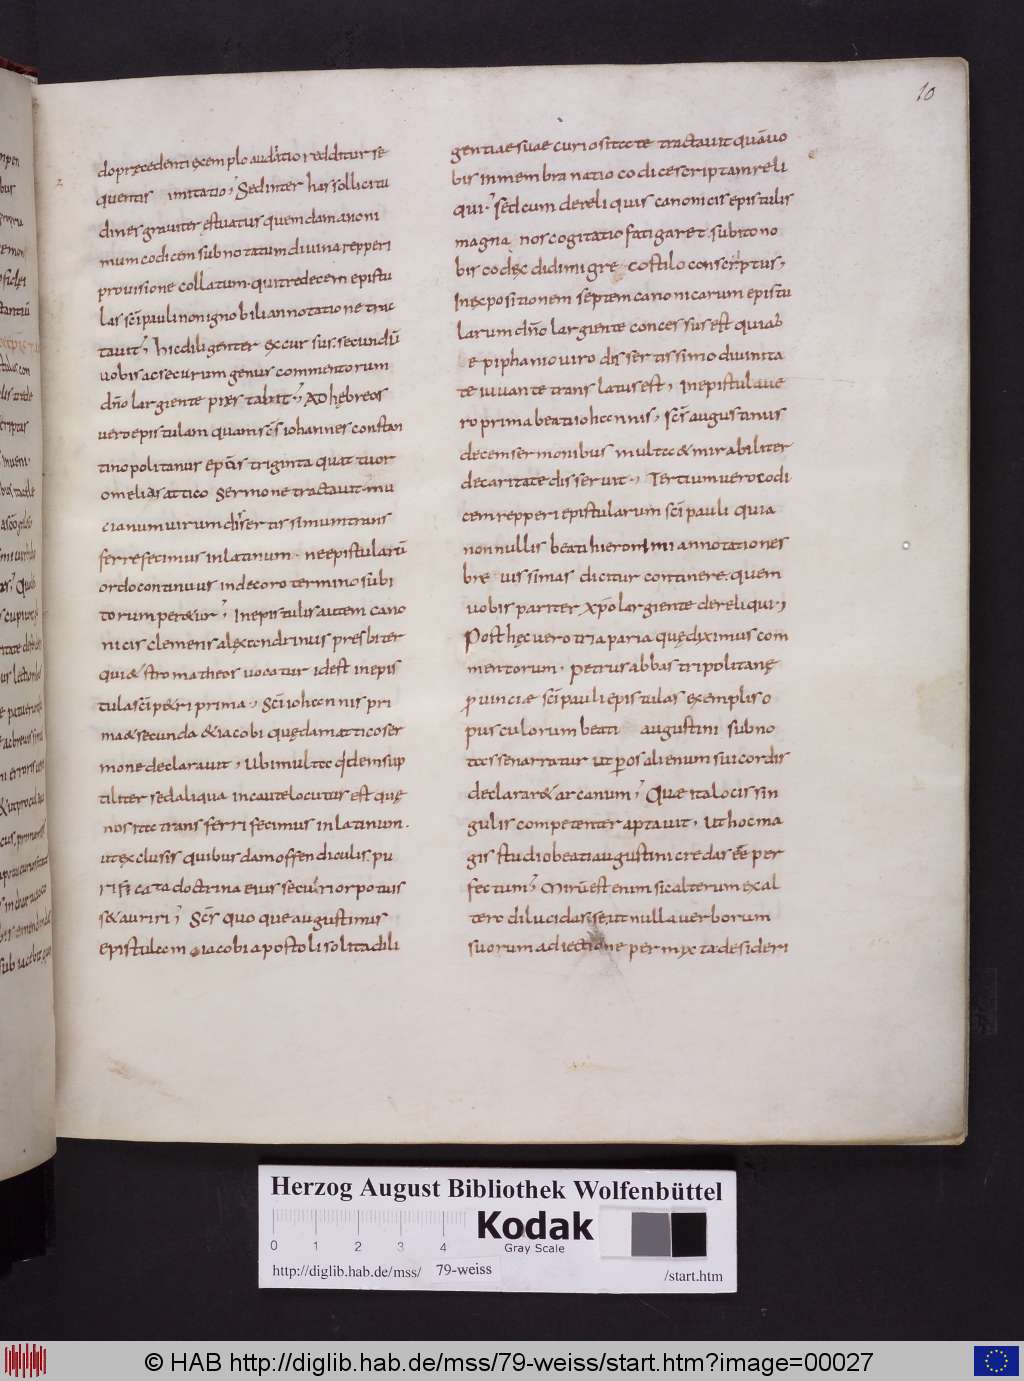 10
dopręcedenti exemplo audatio redditur se
quentis imitatio; Sed inter has sollicitu
dines graviter estuatus quemdam anoni
mum codicem subnotatum divina repperi
provisione collatum. qui tredecem epistu
las sc̄i pauli non ignobili annotatione trac
tavit; hic diligenter excursus. secundū
vobis ac securum genus commentorum
dn̄o largiente prestabit; Ad hębreos
vero epistulam quam sc̄s iohannes constan
tinopolitanus ep̄s triginta quattuor
omelias attico sermone tractavit. mu
cianum virum disertissimum trans
ferre fecimus in latinum. ne epistularū
ordo continuus indecoro termino subi
to rumperetur; In epistulis autem cano
nicis clemens alexandrinus presbiter
qui & stromatheos vocatur idest in epis
tula sc̄i petri prima. Sc̄i iohannis pri
ma & secunda & iacobi quędam attico ser
mone declaravit; Ubi multa quidem sup
tiliter sed aliqua incaute locutus est quę
nos ita transferri fecimus in latinum.
ut exclusis quibusdam offendiculis. pu
rificata doctrina eius securior potuis
s& auriri; Sc̄s quoque augustinus
epistulam iacobi apostoli solita dili
gentiae suae curiositate tractavit quā vo
bis in membranatio codice scriptam reli
qui; sed cum de reliquis canonicis epistulis
magna nos cogitatio fatigaret. subito no
bis codęc didimi greco stilo conscriptus,
In expositionem septem canonicarum epistu
larum dn̄o largiente concessus est qui ab
epiphanio viro dissertissimo divinita
te iuvante translatus est; In epistula ve
ro prima beati iohannis, sc̄s augustinus
decem sermonibus multa & mirabiliter
de caritate disseruit; Tertium vero codi
cem repperi epistularum sc̄i pauli quia
nonnullis beati hieronimi annotationes
brevissimas dicitur continere. quem
vobis pariter xp̄o largiente dereliqui;
Post hęc vero tria paria quę diximus com
mentorum. petrus abbas tripolitanę
provinciae sc̄i pauli epistulas exemplis o
pusculorum beati augustini subno
tas enarratur ut per os alienum sui cordis
declararet arcanum; Que ita locis sin
gulis competenter aptavit, ut hoc ma
gis studio beati augustini credas eē per
fectum; Mirū est enim sic alterum ex al
tero dilucidasse ut nulla verborum
suorum adiectione permyxta desideri
Herzog August Bibliothek Wolfenbüttel
0 1 2 3 4
Kodak
Gray Scale
http://diglib.hab.de/mss/ 79-weiss /start.htm
© HAB http://diglib.hab.de/mss/79-weiss/start.htm?image=00027